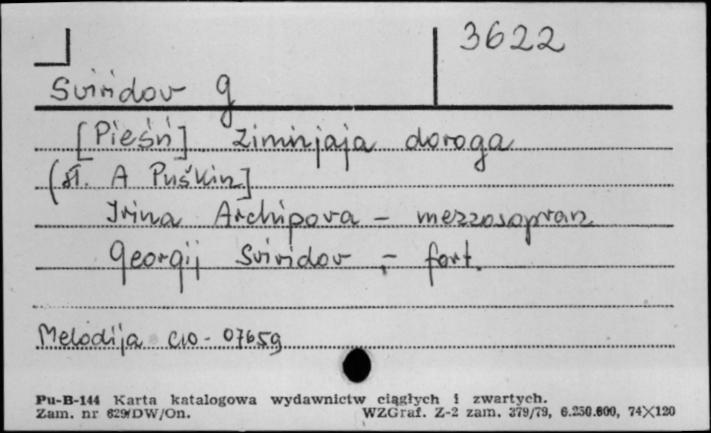 3622
Sviridov G
[Pieśń] Zimnjaja doroga
(sł. A Puškin]
Irina Archipova – mezzosopran
Georgij Sviridov – fort.
Melodija C10-07659
Pu-B-144 Karta katalogowa wydawnictw ciągłych i zwartych.
Zam. nr 629/DW/On. WZGraf. Z-2 zam. 379/79, 6.250.600, 74X120